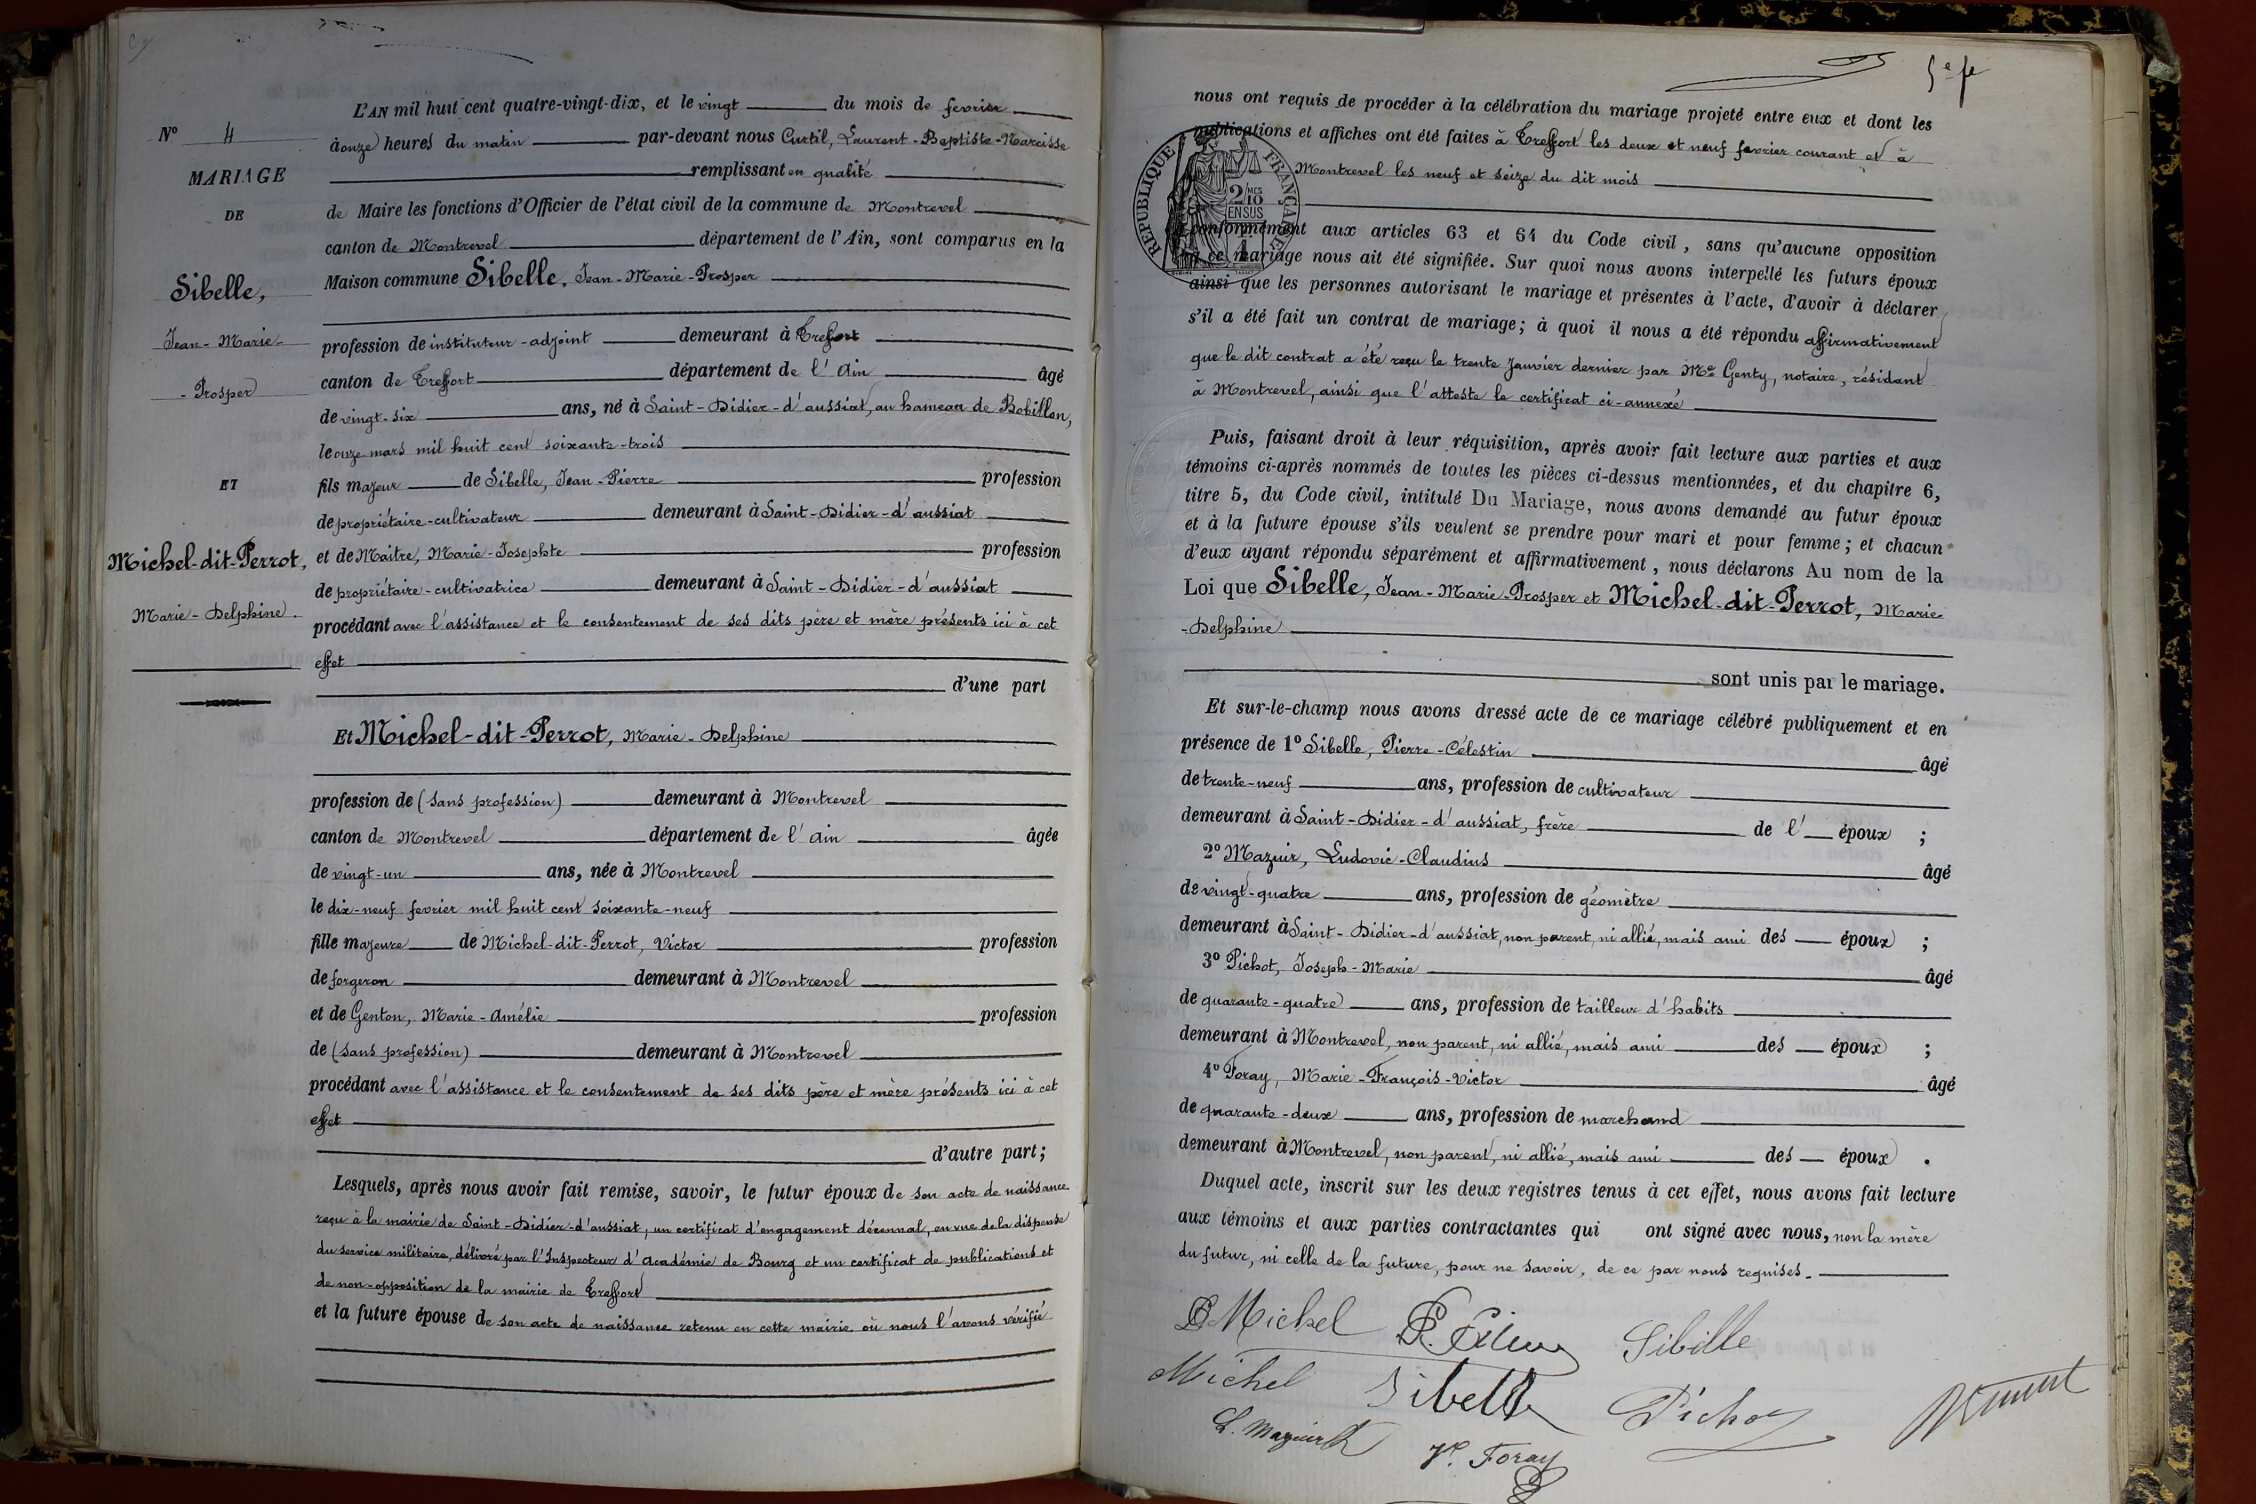 N° 4
MARIAGE
DE
Sibelle,
Jean-Marie-
-Prosper
ET
Michel-dit-Perrot,
Marie-Delphine.
L'AN mil huit cent quatre-vingt-dix, et le vingt du mois de fevrier
à onze heures du matin par-devant nous Curtil, Laurent-Baptiste-Narcisse
remplissant en qualité
de Maire les fonctions d'Officier de l'état civil de la commune de Montrevel
canton de Montrevel département de l'Ain, sont comparus en la
Maison commune Sibelle, Jean-Marie-Prosper
profession de instituteur-adjoint demeurant à Treffort
canton de Treffort département de l'Ain âgé
de vingt-six ans, né à Saint-Didier-d'aussiat, au hameau de Bobillon,
le onze mars mil huit cent soixante-trois
fils majeur de Sibelle, Jean-Pierre profession
de propriétaire-cultivateur demeurant à Saint-Didier-d'aussiat
et de Maitre, Marie-Josephte profession
de propriétaire-cultivatrice demeurant à Saint-Didier-d'aussiat
procédant avec l'assistance et le consentement de ses dits père et mère présents ici à cet
effet
d'une part
Et Michel-dit-Perrot, Marie-Delphine
profession de (sans profession) demeurant à Montrevel
canton de Montrevel département de l'Ain âgée
de vingt-un ans, née à Montrevel
le dix-neuf fevrier mil huit cent soixante-neuf
fille majeure de Michel-dit-Perrot, Victor profession
de forgeron demeurant à Montrevel
et de Genton, Marie-Amélie profession
de (sans profession) demeurant à Montrevel
procédant avec l'assistance et le consentement de ses dits père et mère présents ici à cet
effet
d'autre part;
Lesquels, après nous avoir fait remise, savoir, le futur époux de son acte de naissance
reçu à la mairie de Saint-Didier-d'aussiat, un certificat d'engagement décennal, en vue de la dispense
du service militaire, délivré par l'Inspecteur d'Académie de Bourg et un certificat de publications et
de non-opposition de la mairie de Treffort
et la future épouse de son acte de naissance retenu en cette mairie où nous l'avons vérifié
5e fe
nous ont requis de procéder à la célébration du mariage projeté entre eux et dont les
publications et affiches ont été faites à Treffort les deux et neuf fevrier courant et à
Montrevel les neuf et seize du dit mois
RÉPUBLIQUE FRANÇAISE
2/10 MES
EN SUS
conformément aux articles 63 et 64 du Code civil, sans qu'aucune opposition
à ce mariage nous ait été signifiée. Sur quoi nous avons interpellé les futurs époux
ainsi que les personnes autorisant le mariage et présentes à l'acte, d'avoir à déclarer
s'il a été fait un contrat de mariage; à quoi il nous a été répondu affirmativement
que le dit contrat a été reçu le trente Janvier dernier par Me Genty, notaire, résidant
à Montrevel, ainsi que l'atteste le certificat ci-annexé
Puis, faisant droit à leur réquisition, après avoir fait lecture aux parties et aux
témoins ci-après nommés de toutes les pièces ci-dessus mentionnées, et du chapitre 6,
titre 5, du Code civil, intitulé Du Mariage, nous avons demandé au futur époux
et à la future épouse s'ils veulent se prendre pour mari et pour femme; et chacun
d'eux ayant répondu séparément et affirmativement, nous déclarons Au nom de la
Loi que Sibelle, Jean-Marie-Prosper et Michel-dit-Perrot, Marie-
-Delphine
sont unis par le mariage.
Et sur-le-champ nous avons dressé acte de ce mariage célébré publiquement et en
présence de 1° Sibelle, Pierre-Célestin âgé
de trente-neuf ans, profession de cultivateur
demeurant à Saint-Didier-d'aussiat, frère de l'époux ;
2° Mazuir, Ludovic-Claudius âgé
de vingt-quatre ans, profession de géomètre
demeurant à Saint-Didier-d'aussiat, non parent, ni allié, mais ami des époux ;
3° Pichot, Joseph-Marie âgé
de quarante-quatre ans, profession de tailleur d'habits
demeurant à Montrevel, non parent, ni allié, mais ami des époux ;
4° Foray, Marie-François-Victor âgé
de quarante-deux ans, profession de marchand
demeurant à Montrevel, non parent, ni allié, mais ami des époux .
Duquel acte, inscrit sur les deux registres tenus à cet effet, nous avons fait lecture
aux témoins et aux parties contractantes qui ont signé avec nous, non la mère
du futur, ni celle de la future, pour ne savoir, de ce par nous requises.
D Michel
Sibille
Michel
Sibelle
Pichot
L. Mazuir
Vr. Foray